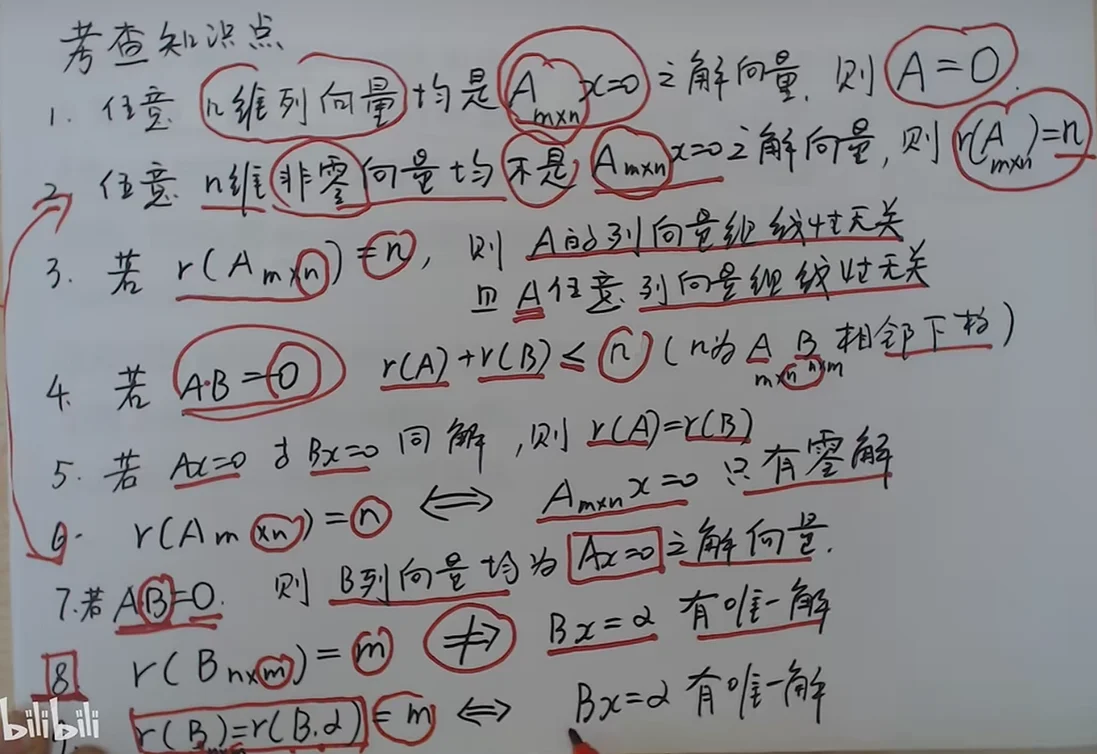 考查知识点
1. 任意 n维列向量 均是 Am×n x=0 之解向量, 则 A=0.
2. 任意 n维 非零 向量均 不是 Am×n x=0 之解向量, 则 r(Am×n)=n
3. 若 r(Am×n)=n, 则 A的列向量组线性无关
且 A任意列向量组线性无关
4. 若 A·B=0 r(A)+r(B)≤n (n为 A B 相邻下标)
m×n n×m
5. 若 Ax=0 与 Bx=0 同解, 则 r(A)=r(B)
6. r(Am×n)=n ⟺ Am×n x=0 只有零解
7. 若 AB=0. 则 B列向量均为 Ax=0 之解向量.
8 r(Bn×m)=m ⇏ Bx=α 有唯一解
9. r(B)=r(B.α)=m ⟺ Bx=α 有唯一解
bilibili